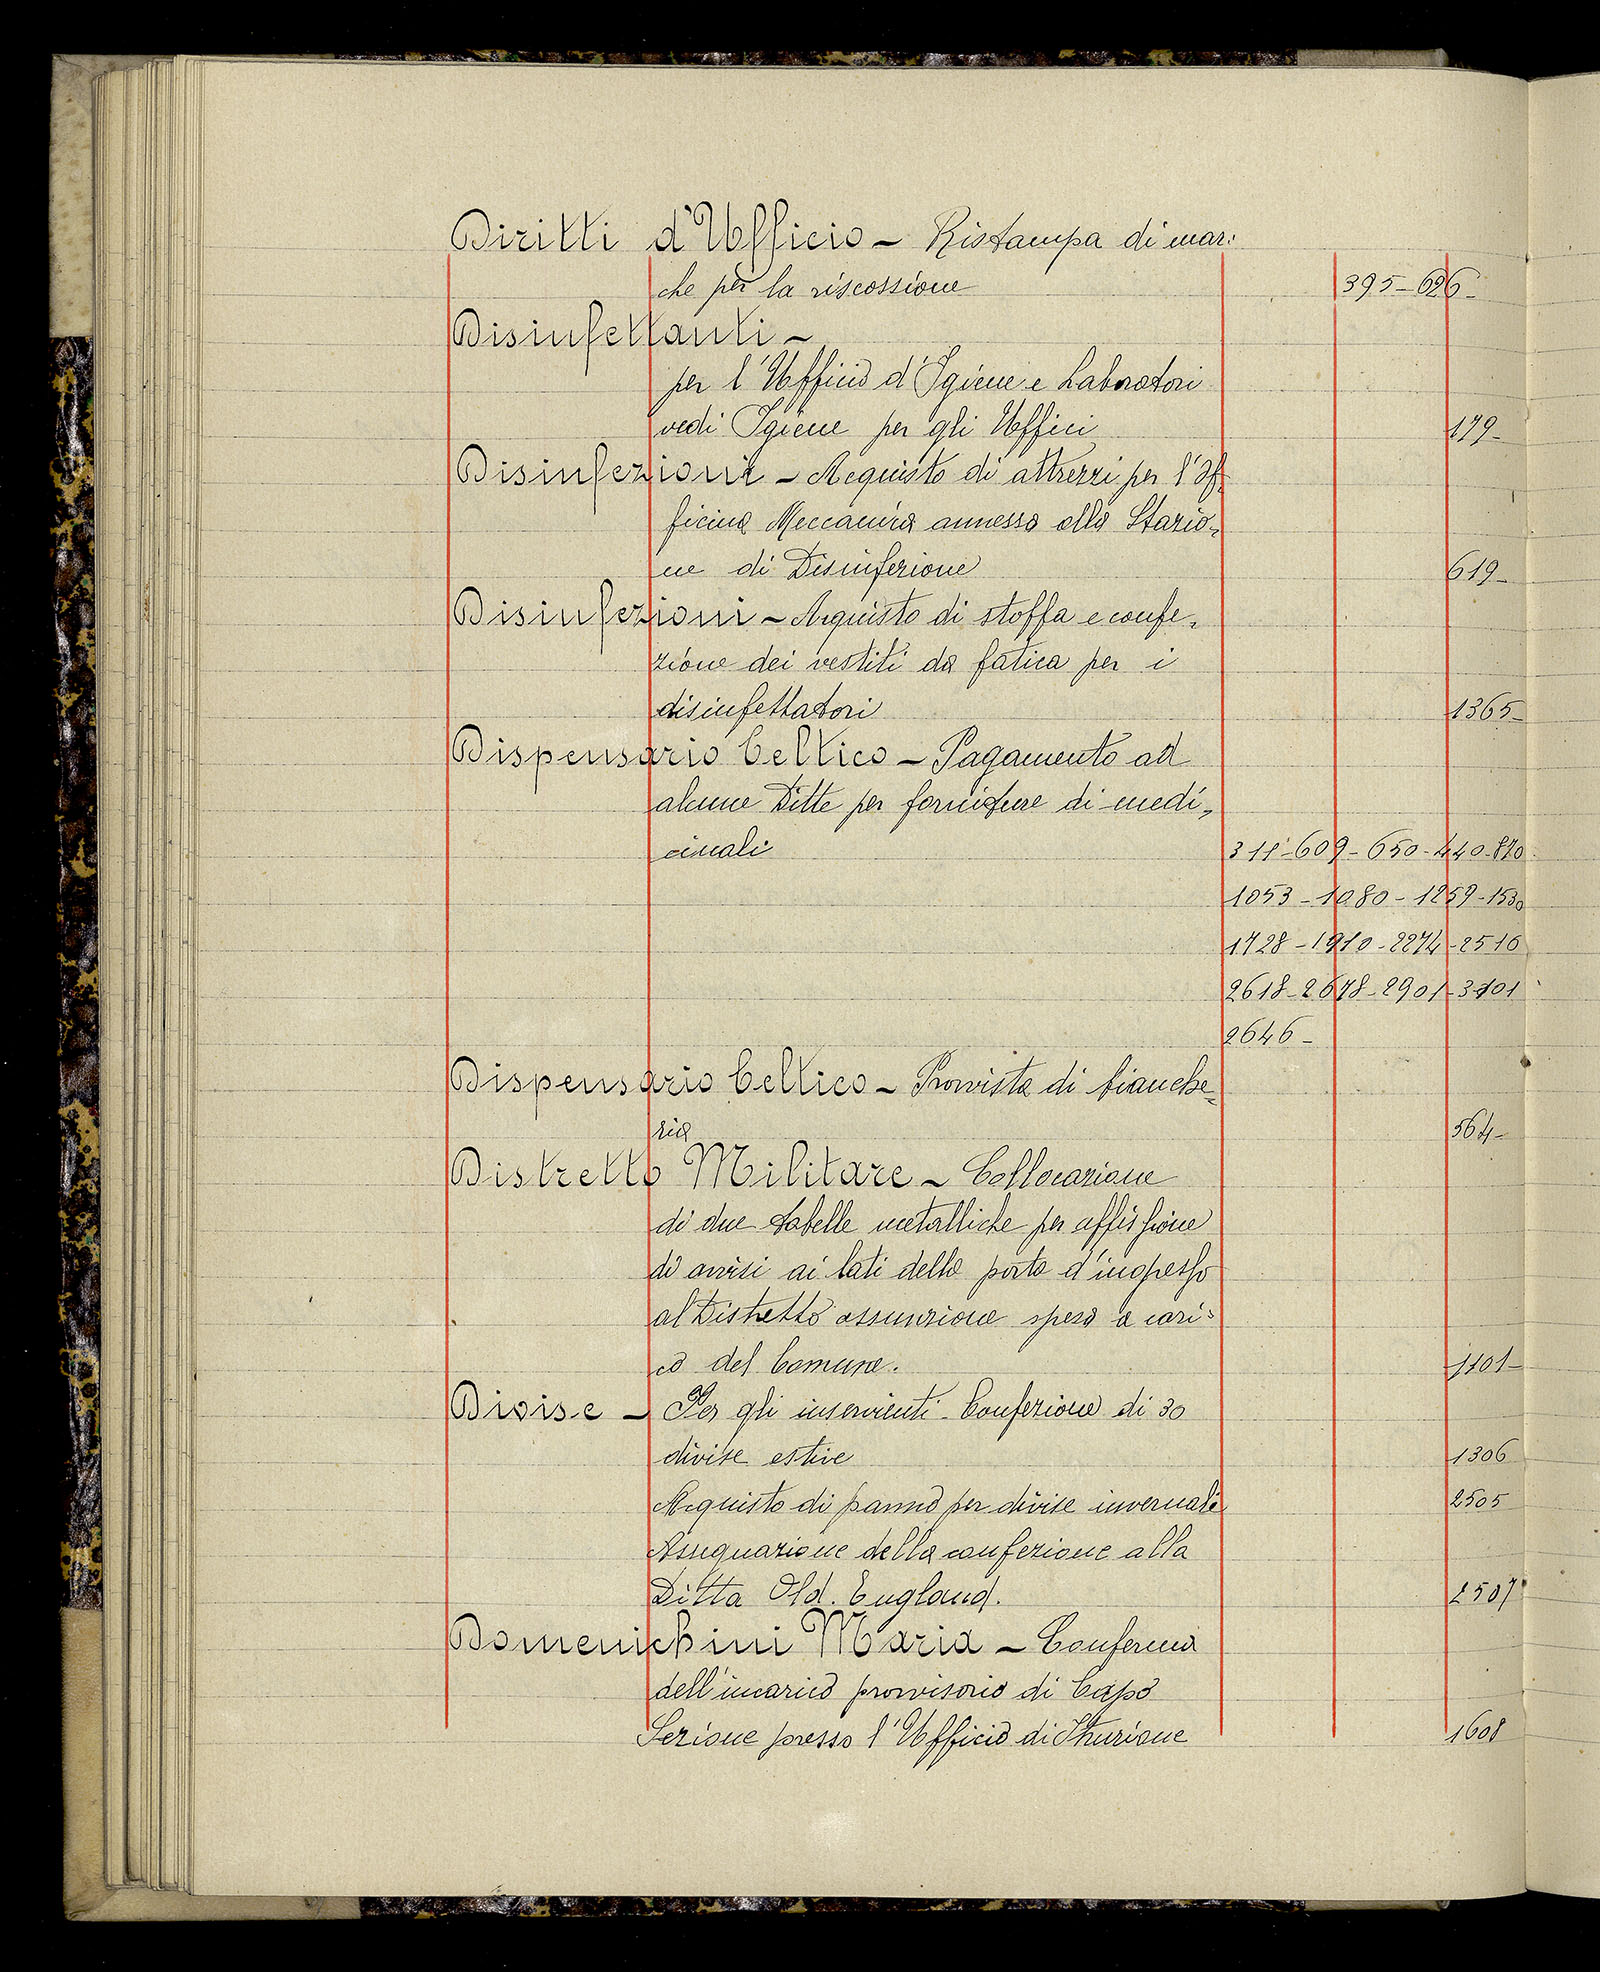 Diritti d'Ufficio - Ristampa di mar:
che per la riscossione 395-626-
Disinfettanti -
per l'Ufficio d'Igiene e Laboratori
vedi Igiene per gli Uffici 179-
Disinfezioni - Acquisto di attrezzi per l'Of=
ficina Meccanica annessa alla Stazio=
ne di Disinfezione 619-
Disinfezioni - Acquisto di stoffa e confe=
zione dei vestiti da fatica per i
disinfettatori 1365-
Dispensario Celtico - Pagamento ad
alcune Ditte per forniture di medi=
cinali 311-609-650-440-870-
1053-1080-1259-1530
1728-1910-2274-2516
2618-2678-2901-3101
2646-
Dispensario Celtico - Provvista di bianche=
ria 564-
Distretto Militare - Collocazione
di due tabelle metalliche per affissione
di avvisi ai lati della porta d'ingresso
al Distretto assunzione spesa a cari=
co del Comune. 1101-
Divise - Per gli inservienti - Confezione di 30
divise estive 1306
Acquisto di panno per divise invernali 2505
Assegnazione della confezione alla
Ditta Old. England. 2507
Domenichini Maria - Conferma
dell'incarico provvisorio di Capo
Sezione presso l'Ufficio di Istruzione 1608